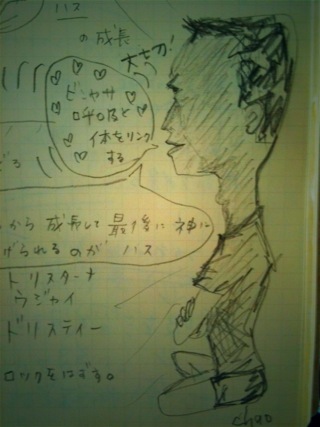 ハス
の成長
大せつ!
ビンヤサ
呼吸と
体をリンク
する
から 成長して 最後に 神に
げられるのが ハス
ドリスターナ
ウジャイ
ドリスティー
ロックをはずす。
chao